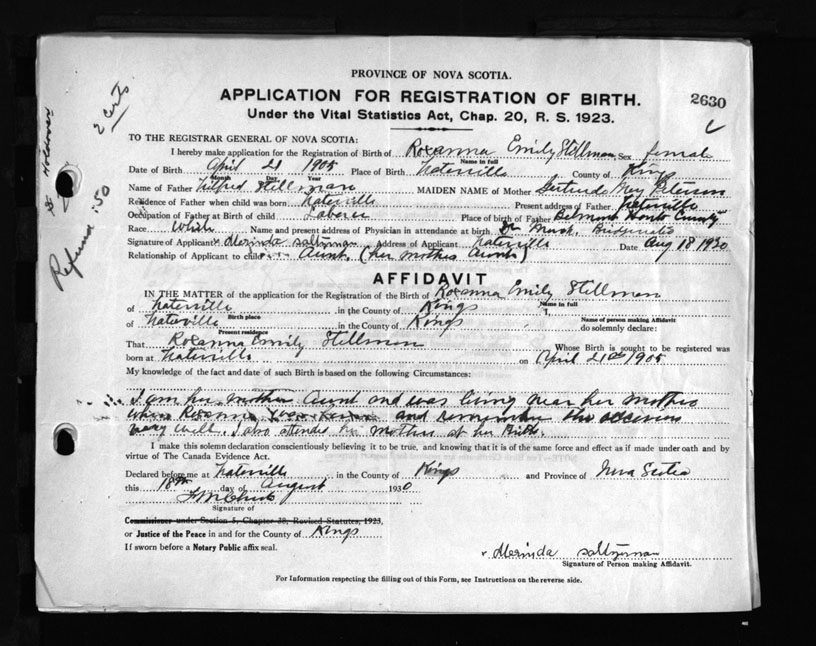 PROVINCE OF NOVA SCOTIA.
APPLICATION FOR REGISTRATION OF BIRTH. 2630
Under the Vital Statistics Act, Chap. 20, R. S. 1923.
2 certs
Refund .50
TO THE REGISTRAR GENERAL OF NOVA SCOTIA:
I hereby make application for the Registration of Birth of Roxanna Emily Stillman Sex female
Name in full
Date of Birth April 21 1905 Place of Birth Waterville County of Kings
Month Day Year
Name of Father Wilfred Stillman MAIDEN NAME of Mother Gertrude May Peterson
Residence of Father when child was born Waterville Present address of Father Waterville
Occupation of Father at Birth of child Laborer Place of birth of Father Belmont Hants County
Race White Name and present address of Physician in attendance at birth Dr
Signature of Applicant Merinda Saltzman Address of Applicant Waterville Date Aug 18 1930
Relationship of Applicant to child Aunt (her mothers Aunt)
AFFIDAVIT
IN THE MATTER of the application for the Registration of the Birth of Roxanna Emily Stillman
Name in full
of Waterville in the County of Kings
Birth place Name of person making Affidavit
of Waterville in the County of Kings do solemnly declare:
Present residence
That Roxanna Emily Stillman Whose Birth is sought to be registered was
born at Waterville on April 21st 1905
My knowledge of the fact and date of such Birth is based on the following Circumstances:
I am her mother Aunt and was living near her mother
when Roxanna was and remember the occasion
very well. I also attended her mother at her Birth.
I make this solemn declaration conscientiously believing it to be true, and knowing that it is of the same force and effect as if made under oath and by
virtue of The Canada Evidence Act.
Declared before me at Waterville in the County of Kings and Province of Nova Scotia
this 18th day of August 1930
Signature of
Commissioner under Section 5, Chapter 38, Revised Statutes, 1923,
or Justice of the Peace in and for the County of Kings
If sworn before a Notary Public affix seal.
Merinda Saltzman
Signature of Person making Affidavit.
For Information respecting the filling out of this Form, see Instructions on the reverse side.